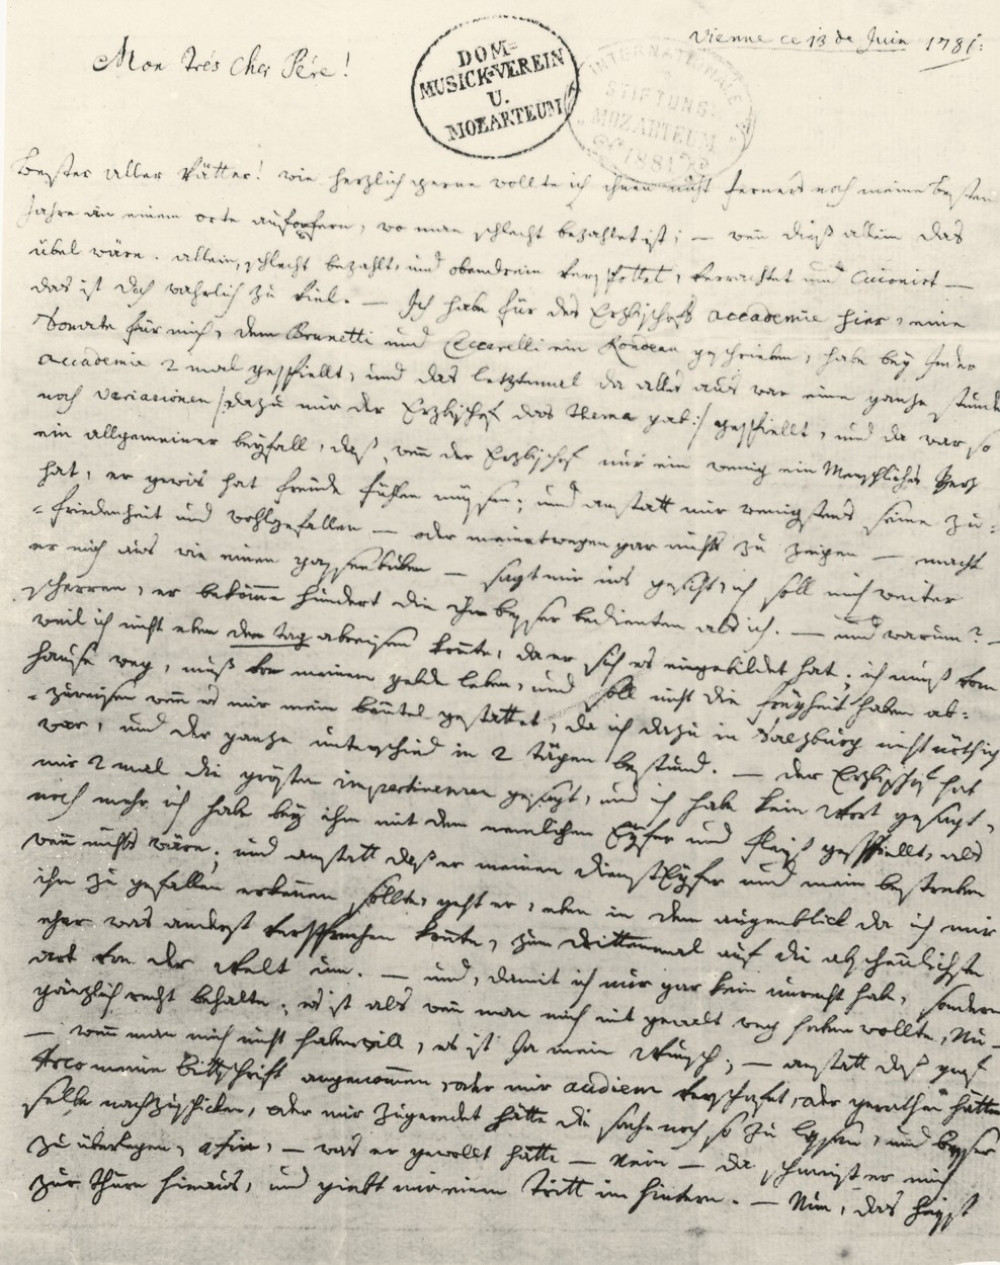 Vienne ce 13 de Juin 1781.
Mon trés cher Pére!
DOM-
MUSICK-VEREIN
U.
MOZARTEUM
INTERNATIONALE
STIFTUNG:
„MOZARTEUM"
1881
Bester aller Vätter! wie herzlich gerne wollte ich ihnen nicht ferners noch meine besten
Jahre an einem orte aufopfern, wo man schlecht bezahlet ist; — wenn dieß allein das
übel wäre. allein, schlecht bezahlt, und obendrein verspottet, verrachtet und Cuionirt —
das ist doch wahrlich zu viel. — Ich habe für des Erzbischofs accademie hier, eine
Sonate für mich, dem Brunetti und Ceccarelli ein Rondeau geschrieben, habe bey Jeder
accademie 2 mal gespiellt, und das letztemal da alles aus war eine ganze stunde
noch variazionen |: dazu mir der Erzbischof das thema gab :| gespiellt, und da war so
ein allgemeiner beyfall, daß, wenn der Erzbischof nur ein wenig ein Menschliches Herz
hat, er gewis hat freude fühlen müssen; und anstatt mir wenigstens seine zu=
=friedenheit und wohlgefallen — oder meinetwegen gar nichts zu zeigen — macht
er mich aus wie einen gassenbuben — sagt mir ins gesicht, ich soll mich weiter
scherren, er bekomme hundert die ihn besser bedienten als ich. — und warum? —
weil ich nicht eben den tag abreisen konnte, da er sich es eingebildet hat; ich muß vom
hause weg, muß von meinem gelde leben, und soll nicht die freyheit haben ab=
=zureisen wenn es mir mein beutel gestattet, da ich dazu in Salzburg nicht nöthig
war, und der ganze unterschied in 2 tägen bestund. — der Erzbischof hat
mir 2 mal die gröste impertinenzen gesagt, und ich habe kein Wort gesagt,
noch mehr, ich habe bey ihm mit dem nemlichen Eyfer und fleiß gespiellt, als
wenn nichts wäre; und anstatt daß er meinen dienst Eyfer und mein bestreben
ihm zu gefallen erkennen sollte, geht er, eben in dem augenblick da ich mir
eher was anderst versprechen konnte, zum drittenmal auf die abscheulichste
art von der Welt um. — und, damit ich nur gar kein unrecht habe, sondern
gänzlich recht behalte; es ist als wenn man mich mit gewalt weg haben wollte, Nu —
— wenn man mich nicht haben will, es ist Ja mein Wunsch; — anstatt daß graf
Arco meine bittschrift angenommen, oder mir audienz verschafet, oder gerathen hätte
selbe nachzuschicken, oder mir zugeredet hätte die sache noch so zu lassen, und besser
zu überlegen, afin, — was er gewollt hätte — Nein — da schmeist er mich
zur thüre hinaus, und giebt mir einen tritt im hintern. — Nun, das heißt